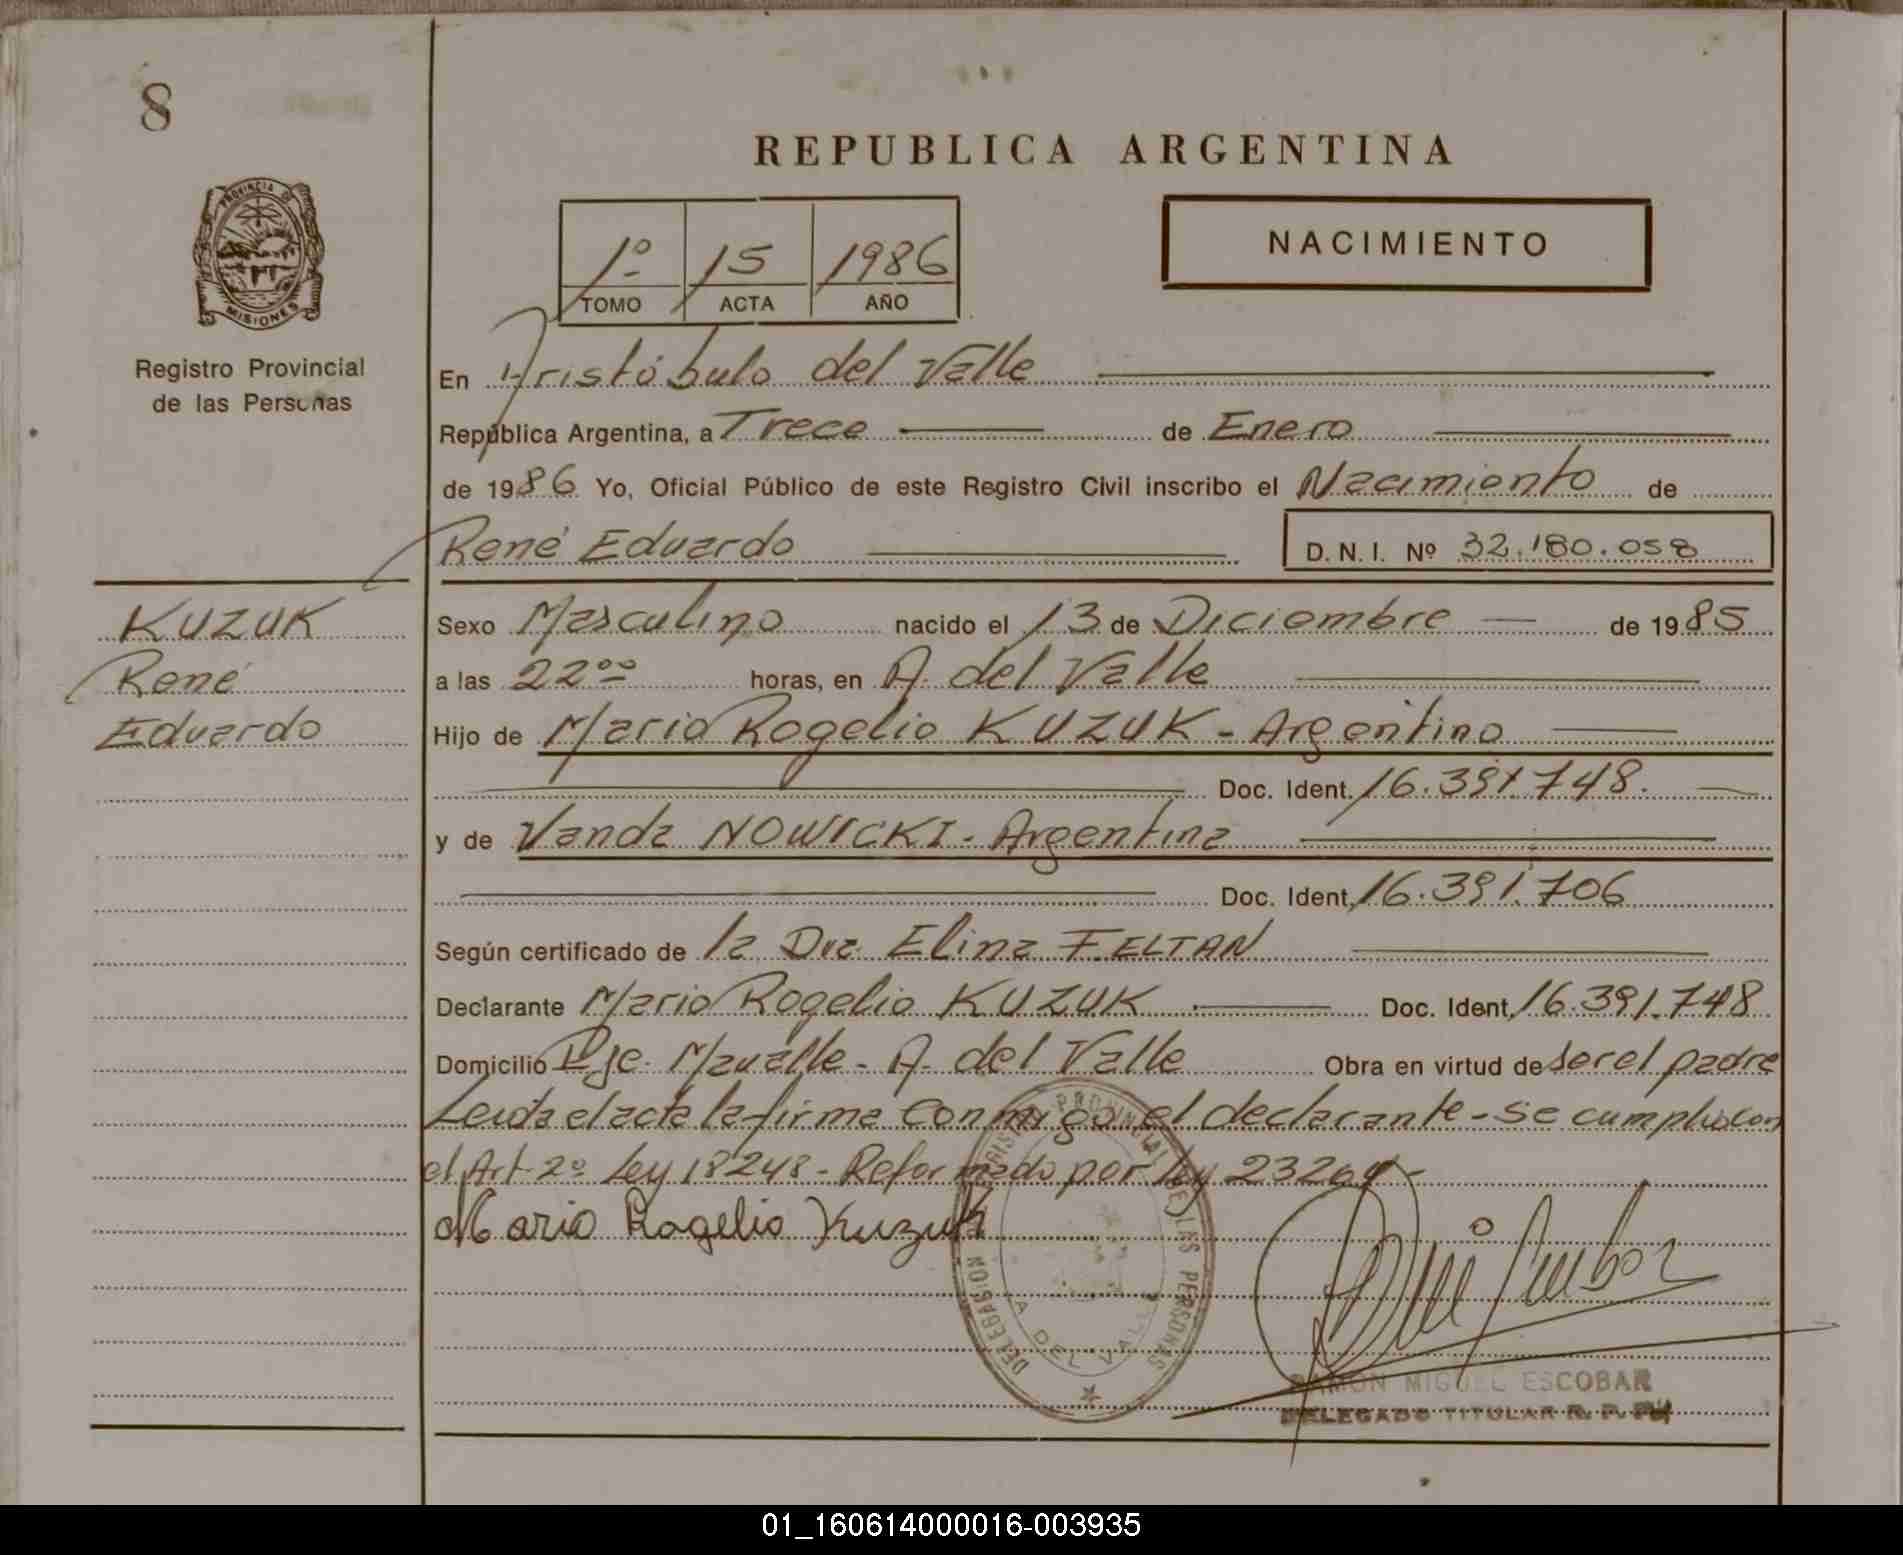 8
REPUBLICA ARGENTINA
PROVINCIA D
MISIONES
Registro Provincial
de las Personas
1º 15 1986
TOMO ACTA AÑO
NACIMIENTO
En Aristóbulo del Valle
República Argentina, a Trece de Enero
de 1986 Yo, Oficial Público de este Registro Civil inscribo el Nacimiento de
René Eduardo D.N.I. Nº 32.180.058
KUZUK
René
Eduardo
Sexo Masculino nacido el 13 de Diciembre de 1985
a las 22ºº horas, en A. del Valle
Hijo de Mario Rogelio KUZUK - Argentino
Doc. Ident. 16.391.748.
y de Vanda NOWICKI - Argentina
Doc. Ident. 16.391.706
Según certificado de la Dra. Elina FELTAN
Declarante Mario Rogelio KUZUK Doc. Ident. 16.391.748
Domicilio Pje. Mavalle - A. del Valle Obra en virtud de ser el padre
Leida el acta la firma conmigo el declarante - se cumplio con
el Art 2º Ley 18248 - Reformado por Ley 23264 -
Mario Rogelio Kuzuk
DELEGASION REGISTRO PROVINCIAL DE LAS PERSONAS
A DEL VALLE
RAMON MIGUEL ESCOBAR
DELEGADO TITULAR R. P. P.
01_160614000016-003935